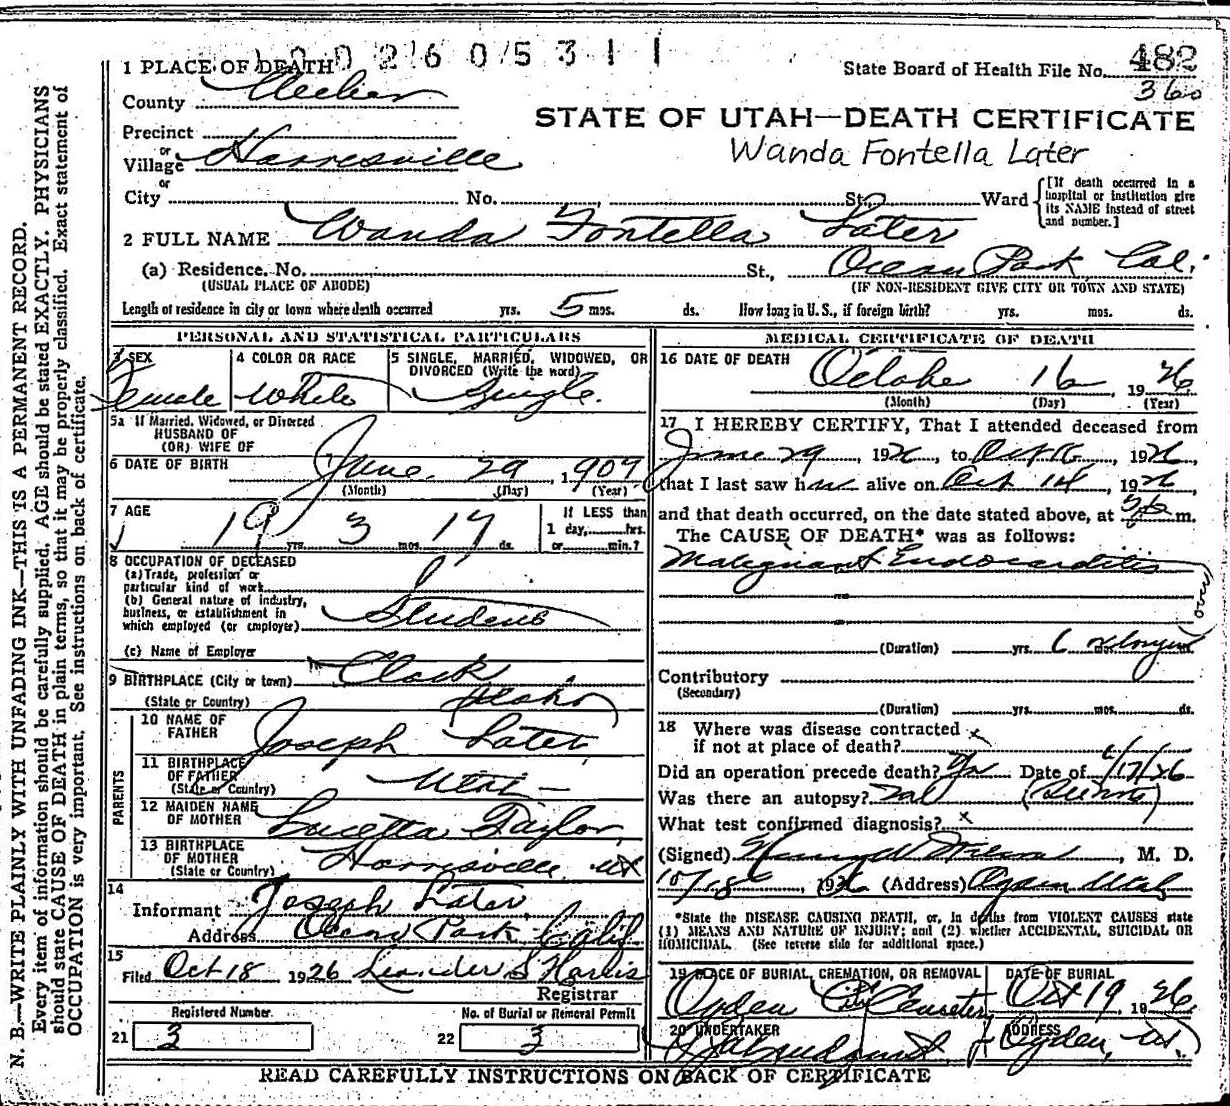 1 0 0 2 6 0 5 3 1 1
482
State Board of Health File No.
360
1 PLACE OF DEATH
County Weber
STATE OF UTAH—DEATH CERTIFICATE
Precinct
or
Village Harresville
Wanda Fontella Later
or
City No. , St., Ward
[If death occurred in a hospital or institution give its NAME instead of street and number.]
2 FULL NAME Wanda Fontella Later
(a) Residence. No. St., Ocean Park, Cal.
(USUAL PLACE OF ABODE) (IF NON-RESIDENT GIVE CITY OR TOWN AND STATE)
Length of residence in city or town where death occurred yrs. 5 mos. ds. How long in U. S., if foreign birth? yrs. mos. ds.
PERSONAL AND STATISTICAL PARTICULARS
3 SEX
Female
4 COLOR OR RACE
White
5 SINGLE, MARRIED, WIDOWED, OR
DIVORCED (Write the word)
Single.
5a If Married, Widowed, or Divorced
HUSBAND OF
(OR) WIFE OF
6 DATE OF BIRTH June 29, 1907
(Month) (Day) (Year)
7 AGE
19 yrs. 3 mos. 17 ds.
If LESS than
1 day, hrs.
or min.?
8 OCCUPATION OF DECEASED
(a) Trade, profession or
particular kind of work
(b) General nature of industry,
business, or establishment in
which employed (or employer)
Student
(c) Name of Employer
9 BIRTHPLACE (City or town) Clark
(State or Country) Idaho
PARENTS
10 NAME OF
FATHER Joseph Later
11 BIRTHPLACE
OF FATHER
(State or Country) Utah
12 MAIDEN NAME
OF MOTHER Lucetta Taylor
13 BIRTHPLACE
OF MOTHER
(State or Country) Harrisville Ut
14
Informant Joseph Later
Address Ocean Park Calif
15
Filed Oct 18 1926 Leander S Harris
Registrar
Registered Number
21 3
No. of Burial or Removal Permit
22 3
MEDICAL CERTIFICATE OF DEATH
16 DATE OF DEATH October 16 1926
(Month) (Day) (Year)
17 I HEREBY CERTIFY, That I attended deceased from
June 29, 1926, to Oct 16, 1926,
that I last saw her alive on Oct 14, 1926,
and that death occurred, on the date stated above, at m.
The CAUSE OF DEATH* was as follows:
Malignant Endocarditis
(over)
(Duration) yrs. 6 mos. or longer
Contributory
(Secondary)
(Duration) yrs. mos. ds.
18 Where was disease contracted
if not at place of death? x
Did an operation precede death? Yes Date of 6/17/26
Was there an autopsy? no
What test confirmed diagnosis? x
(Signed) , M. D.
10/18, 1926 (Address) Ogden Utah
*State the DISEASE CAUSING DEATH, or, in deaths from VIOLENT CAUSES state
(1) MEANS AND NATURE OF INJURY; and (2) whether ACCIDENTAL, SUICIDAL OR
HOMICIDAL. (See reverse side for additional space.)
19 PLACE OF BURIAL, CREMATION, OR REMOVAL
Ogden City Cemetery
DATE OF BURIAL
Oct 19 1926
20 UNDERTAKER
ADDRESS
Ogden, Ut.
READ CAREFULLY INSTRUCTIONS ON BACK OF CERTIFICATE
N. B.—WRITE PLAINLY WITH UNFADING INK—THIS IS A PERMANENT RECORD.
Every item of information should be carefully supplied. AGE should be stated EXACTLY. PHYSICIANS
should state CAUSE OF DEATH in plain terms, so that it may be properly classified. Exact statement of
OCCUPATION is very important. See instructions on back of certificate.